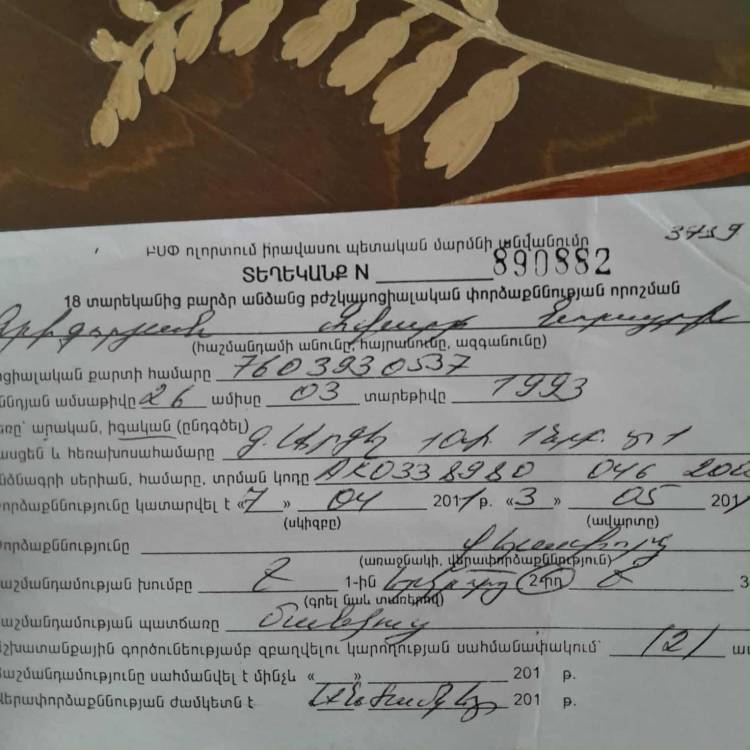 3739
ԲՍՓ ոլորտում իրավասու պետական մարմնի անվանումը
ՏԵՂԵԿԱՆՔ N 890882
18 տարեկանից բարձր անձանց բժշկասոցիալական փորձաքննության որոշման
(հաշմանդամի անունը, հայրանունը, ազգանունը)
ոցիալական քարտի համարը 7603930537
ննդյան ամսաթիվը 26 ամիսը 03 տարեթիվը 1993
եռը՝ արական, իգական (ընդգծել)
ասցեն և հեռախոսահամարը
նձնագրի սերիան, համարը, տրման կոդը AK0338980 046
որձաքննությունը կատարվել է «7» 04 2011 թ. «3» 05 201
(սկիզբը) (ավարտը)
որձաքննությունը
(առաջնակի, վերափորձաքննություն)
աշմանդամության խումբը 2 1-ին 2-րդ 3
(գրել նաև տառերով)
աշմանդամության պատճառը մանկուց
շխատանքային գործունեությամբ զբաղվելու կարողության սահմանափակում՝ /2/ ա
աշմանդամությունը սահմանվել է մինչև « » 201 թ.
վերափորձաքննության ժամկետն է Անժամկետ 201 թ.